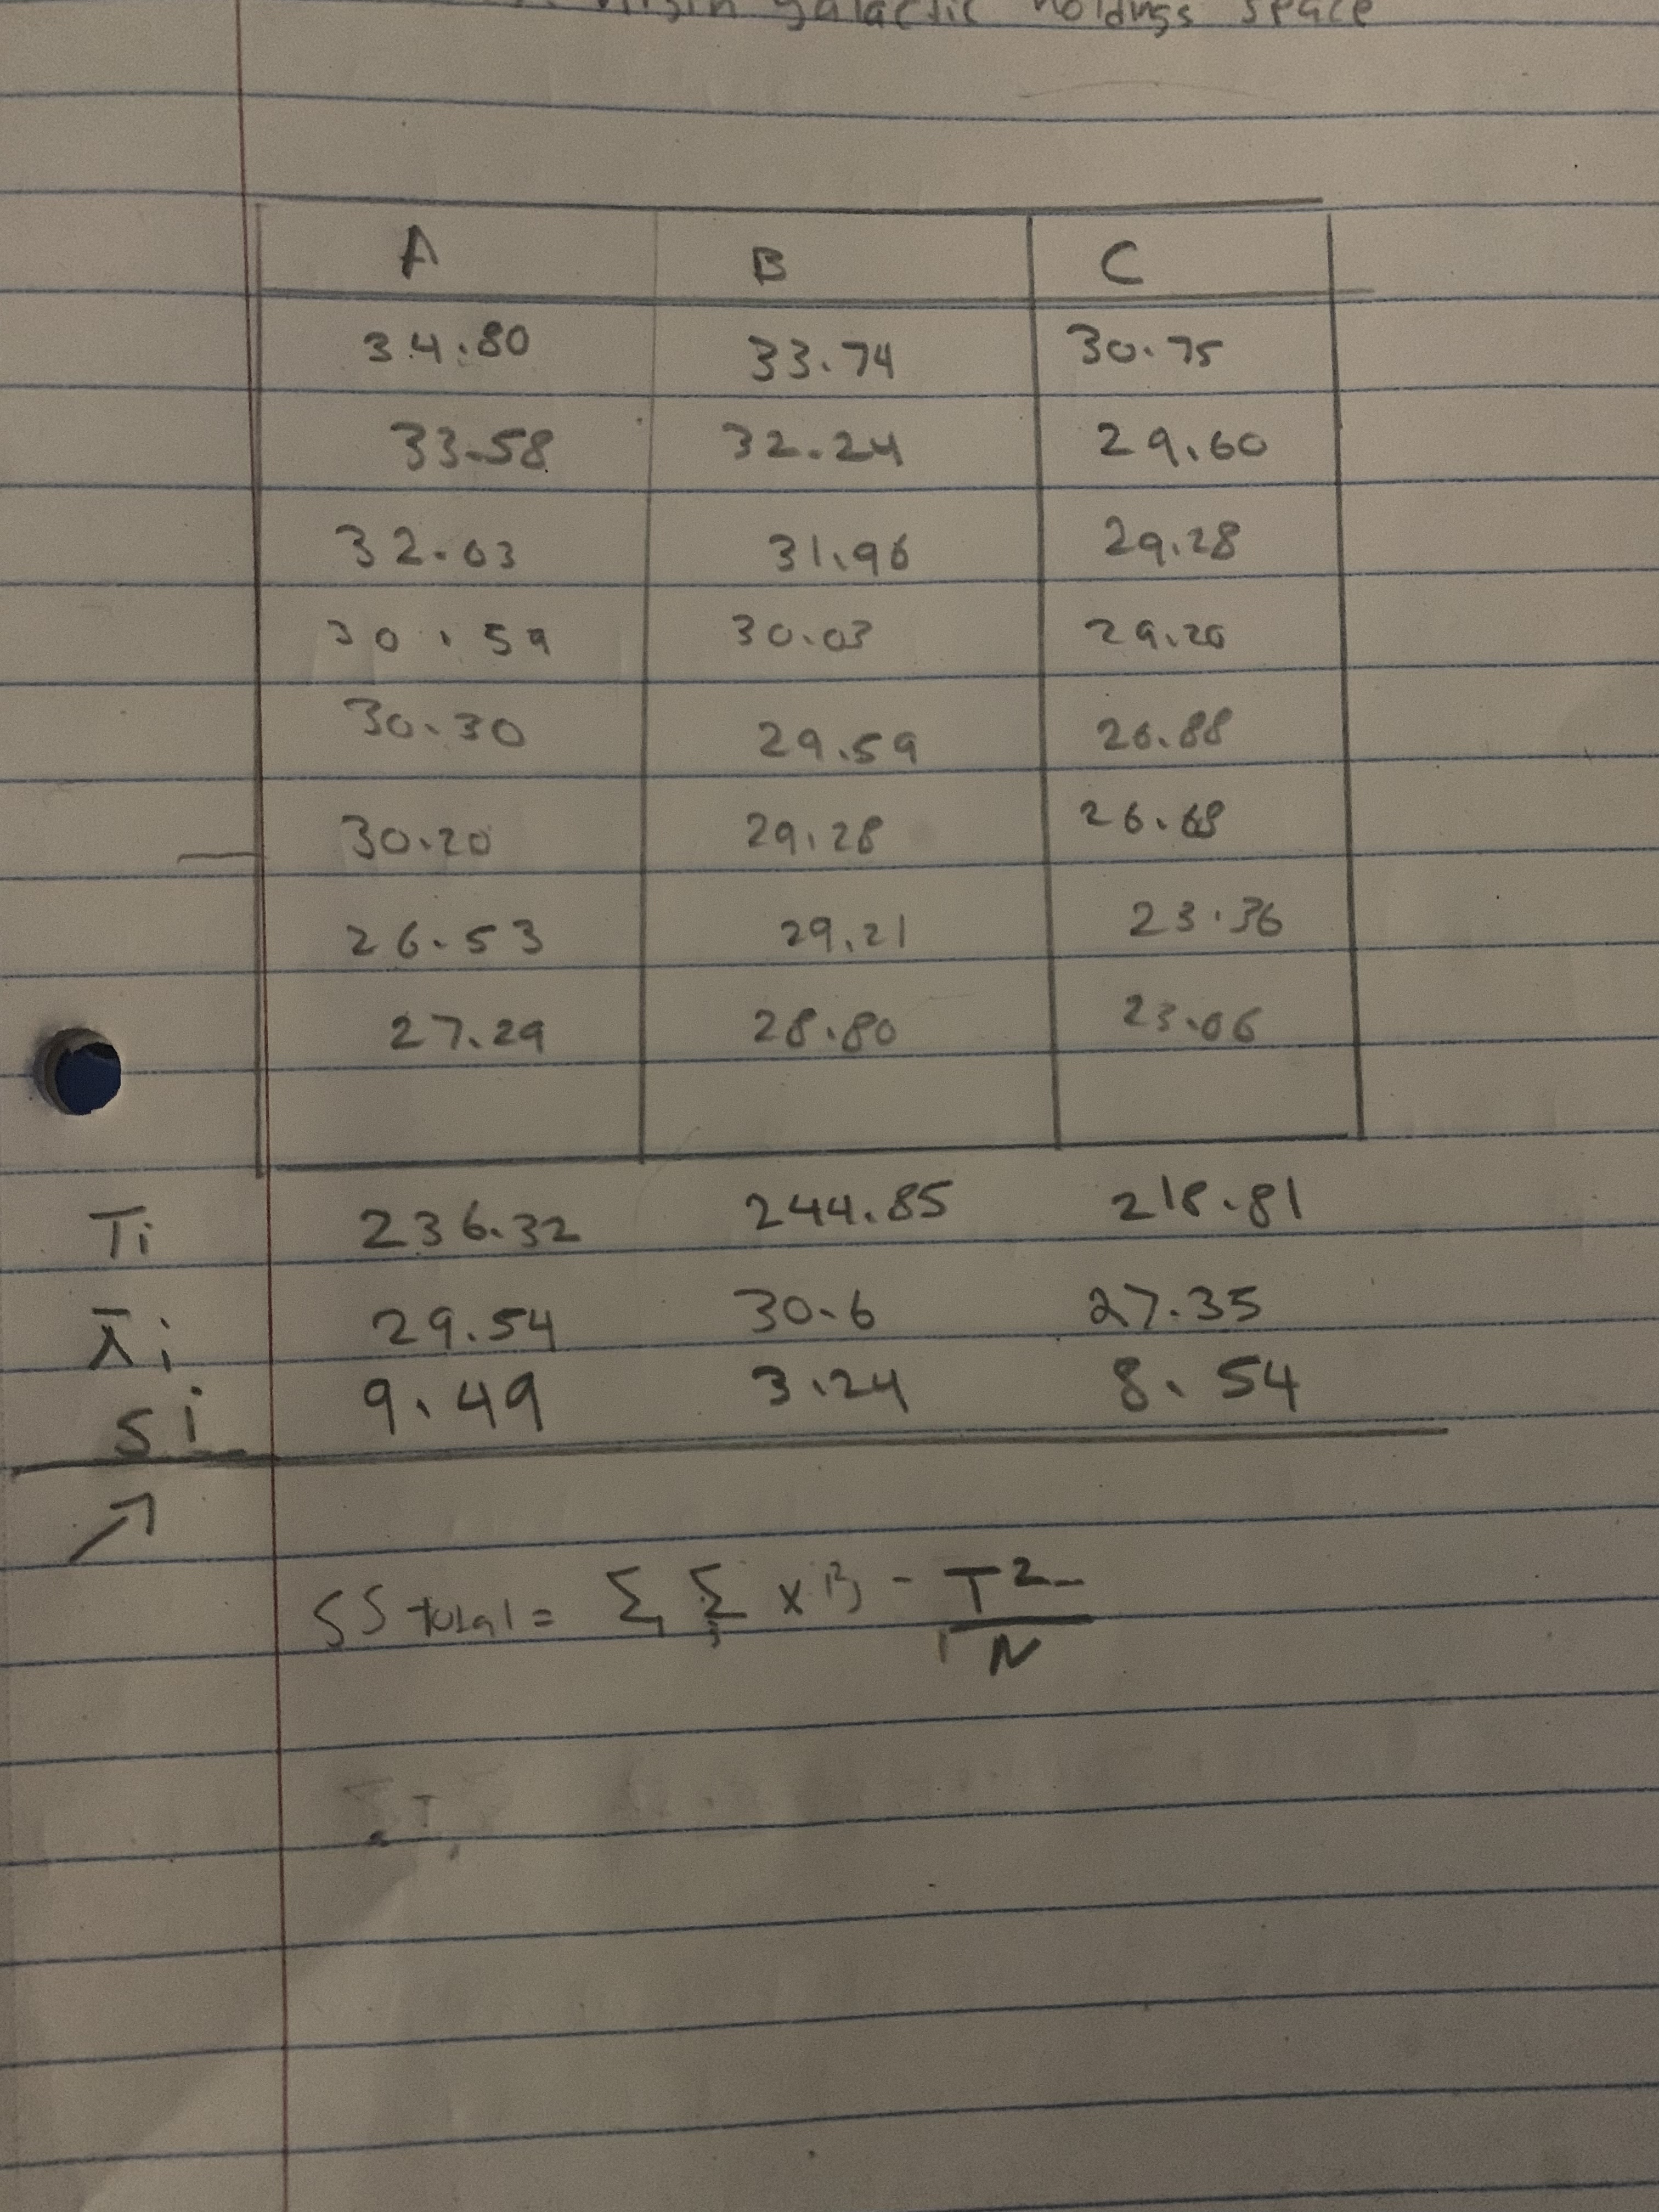 galactic holdings space
A B C
34.80 33.74 30.75
33.58 32.24 29.60
32.03 31.96 29.28
30.59 30.03 29.20
30.30 29.59 26.88
30.20 29.28 26.68
26.53 29.21 23.36
27.29 28.80 23.06
Ti 236.32 244.85 218.81
x̄i 29.54 30.6 27.35
Si 9.49 3.24 8.54
SS total = Σ Σ x - T²
N